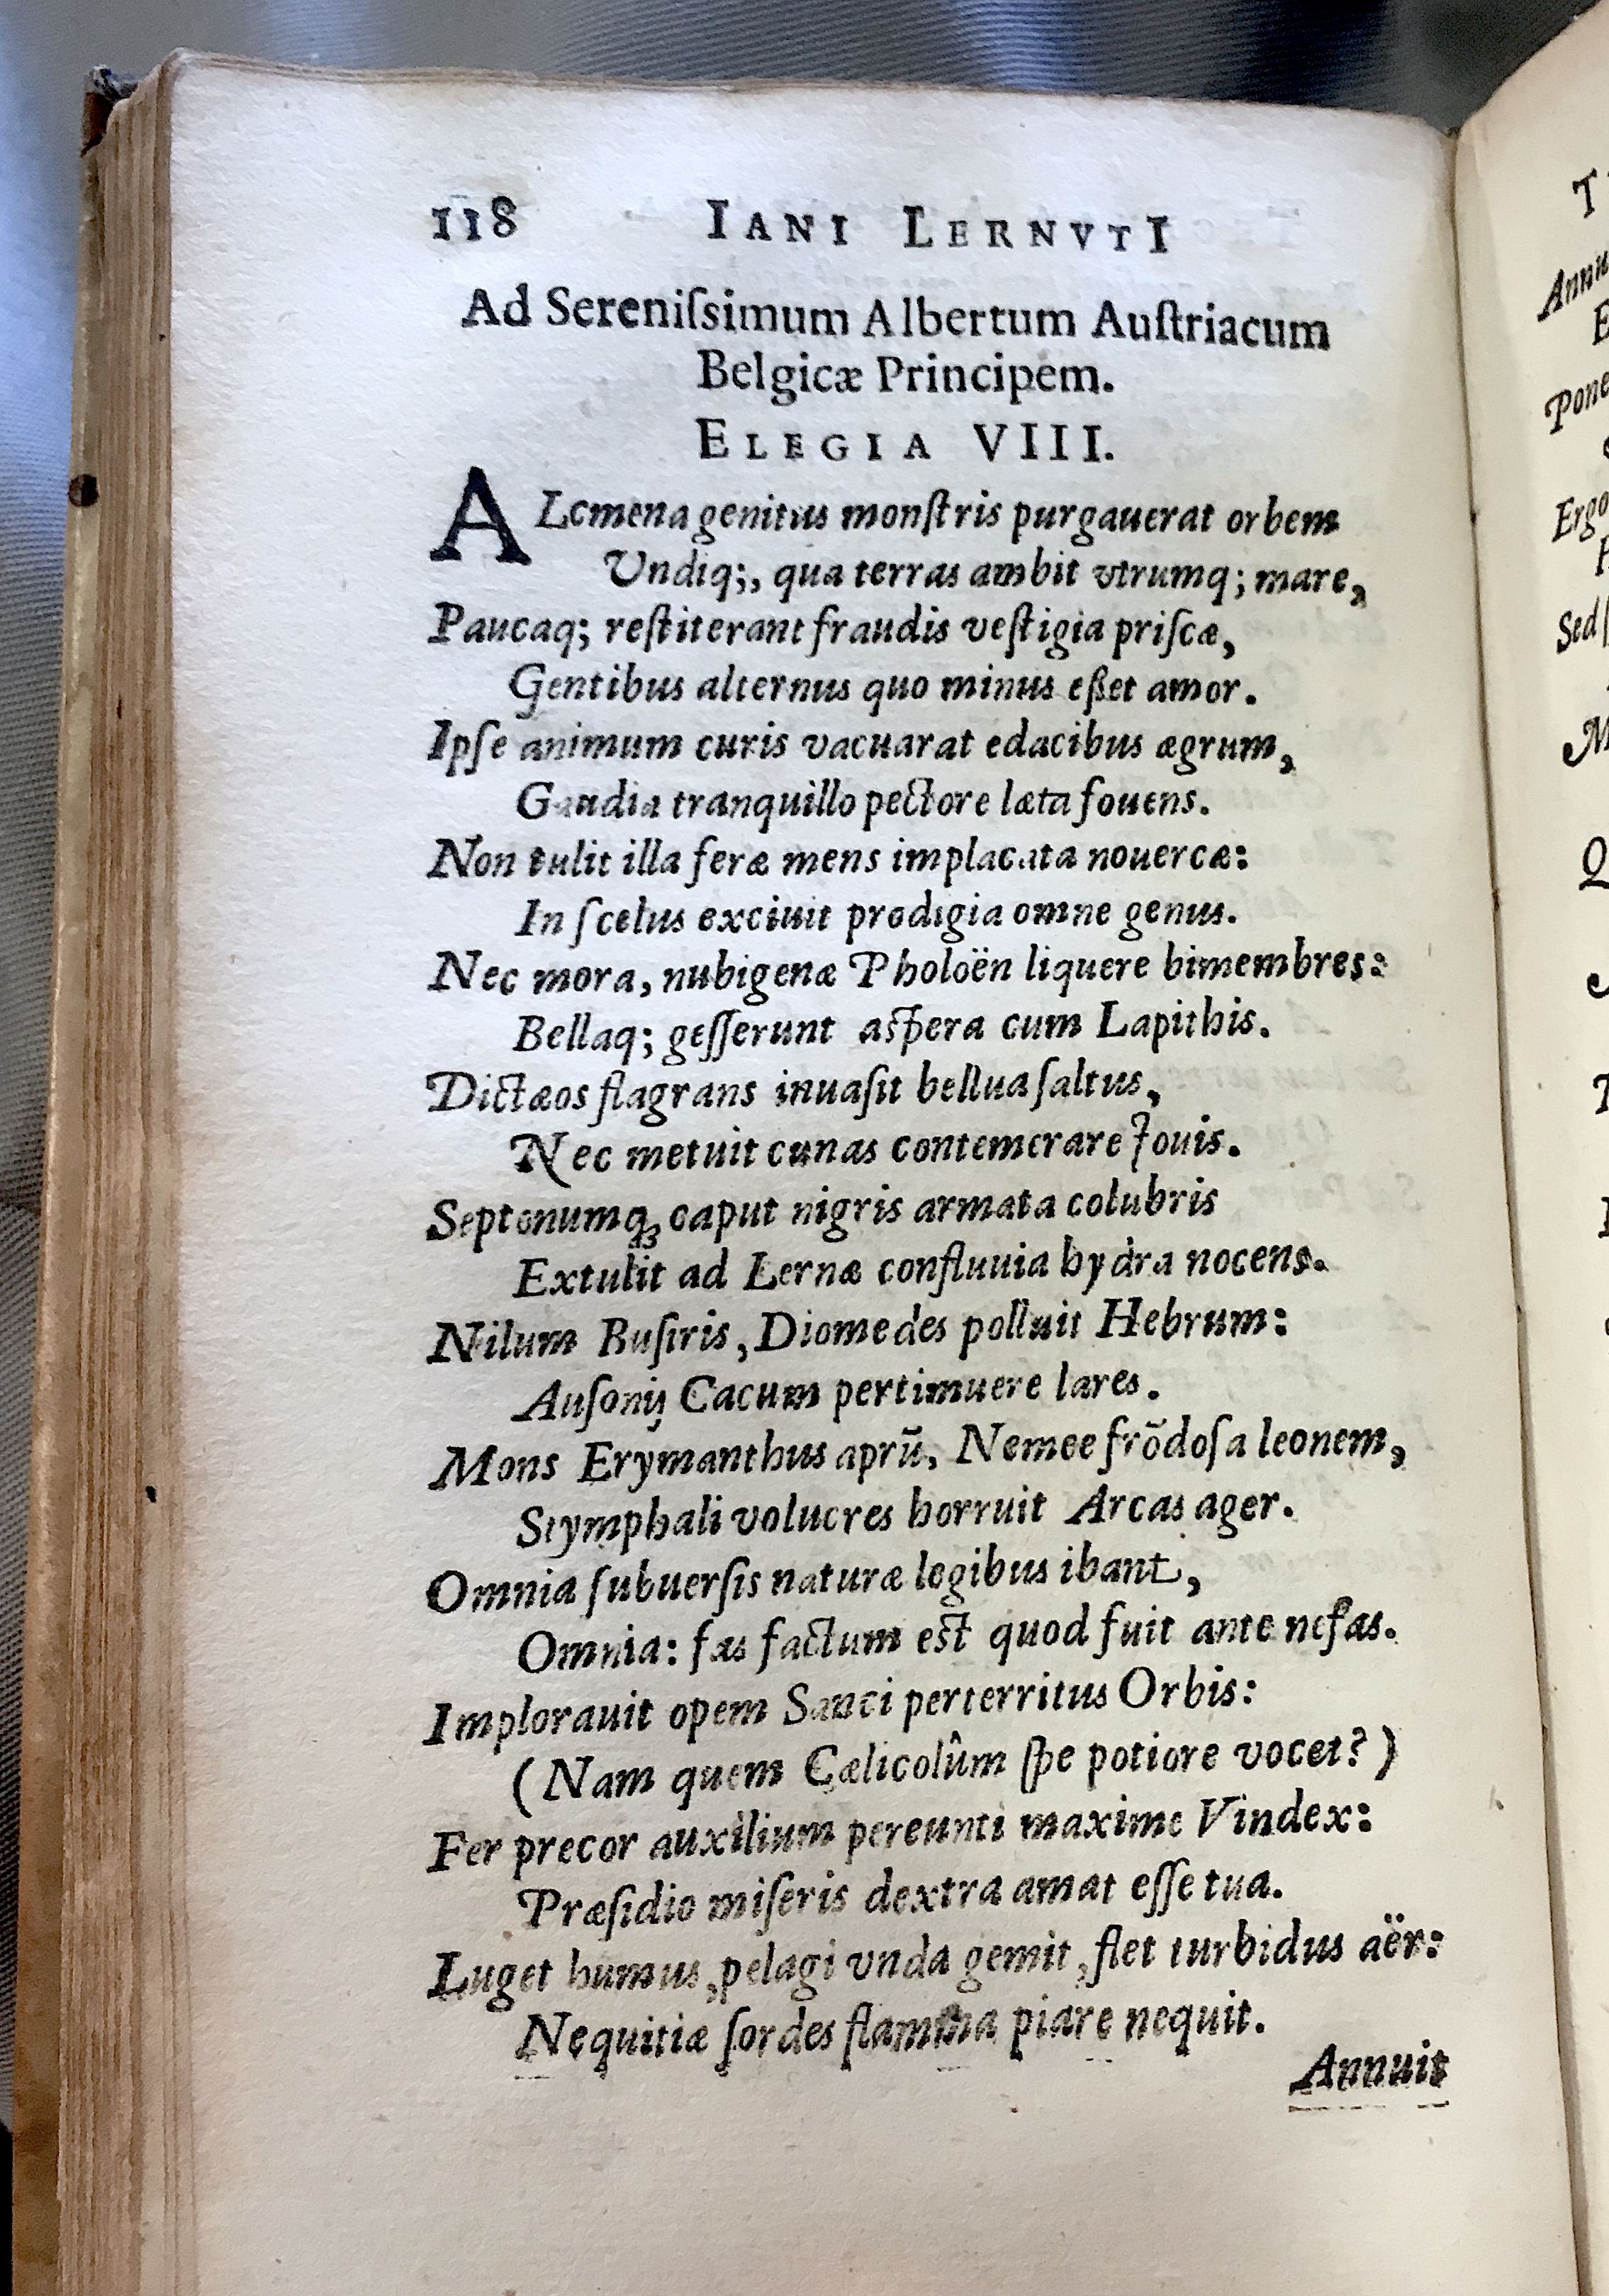 118 IANI LERNVTI
Ad Sereniſsimum Albertum Auſtriacum
Belgicæ Principem.
ELEGIA VIII.
ALcmena genitus monſtris purgauerat orbem
Undiq;, qua terras ambit vtrumq; mare,
Paucaq; reſtiterant fraudis veſtigia priſcæ,
Gentibus alternus quo minus eßet amor.
Ipſe animum curis vacuarat edacibus ægrum,
Gaudia tranquillo pectore læta fouens.
Non tulit illa feræ mens implacata nouercæ:
In ſcelus exciuit prodigia omne genus.
Nec mora, nubigenæ Pholoën liquere bimembres:
Bellaq; geſſerunt aſpera cum Lapithis.
Dictæos flagrans inuaſit bellua ſaltus,
Nec metuit cunas contemerare Jouis.
Septenumq; caput nigris armata colubris
Extulit ad Lernæ confluuia hydra nocens.
Nilum Buſiris, Diomedes polluit Hebrum:
Auſonij Cacum pertimuere lares.
Mons Erymanthus aprū, Nemee frõdoſa leonem,
Stymphali volucres horruit Arcas ager.
Omnia ſubuerſis naturæ legibus ibant,
Omnia: fas factum eſt quod fuit ante nefas.
Implorauit opem Sanci perterritus Orbis:
(Nam quem Cælicolûm ſpe potiore vocet?)
Fer precor auxilium pereunti maxime Vindex:
Præſidio miſeris dextra amat eſſe tua.
Luget humus, pelagi vnda gemit, flet turbidus aër:
Nequitiæ ſordes flamma piare nequit.
Annuit
T
Annu
E
Pone
Ergo
H
Sed
M
Q